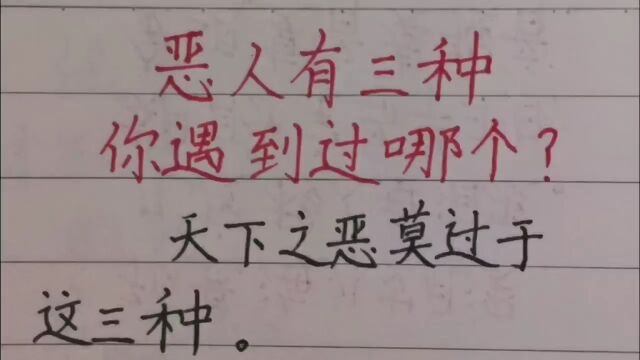 恶人有三种
你遇到过哪个？
天下之恶莫过于
这三种。